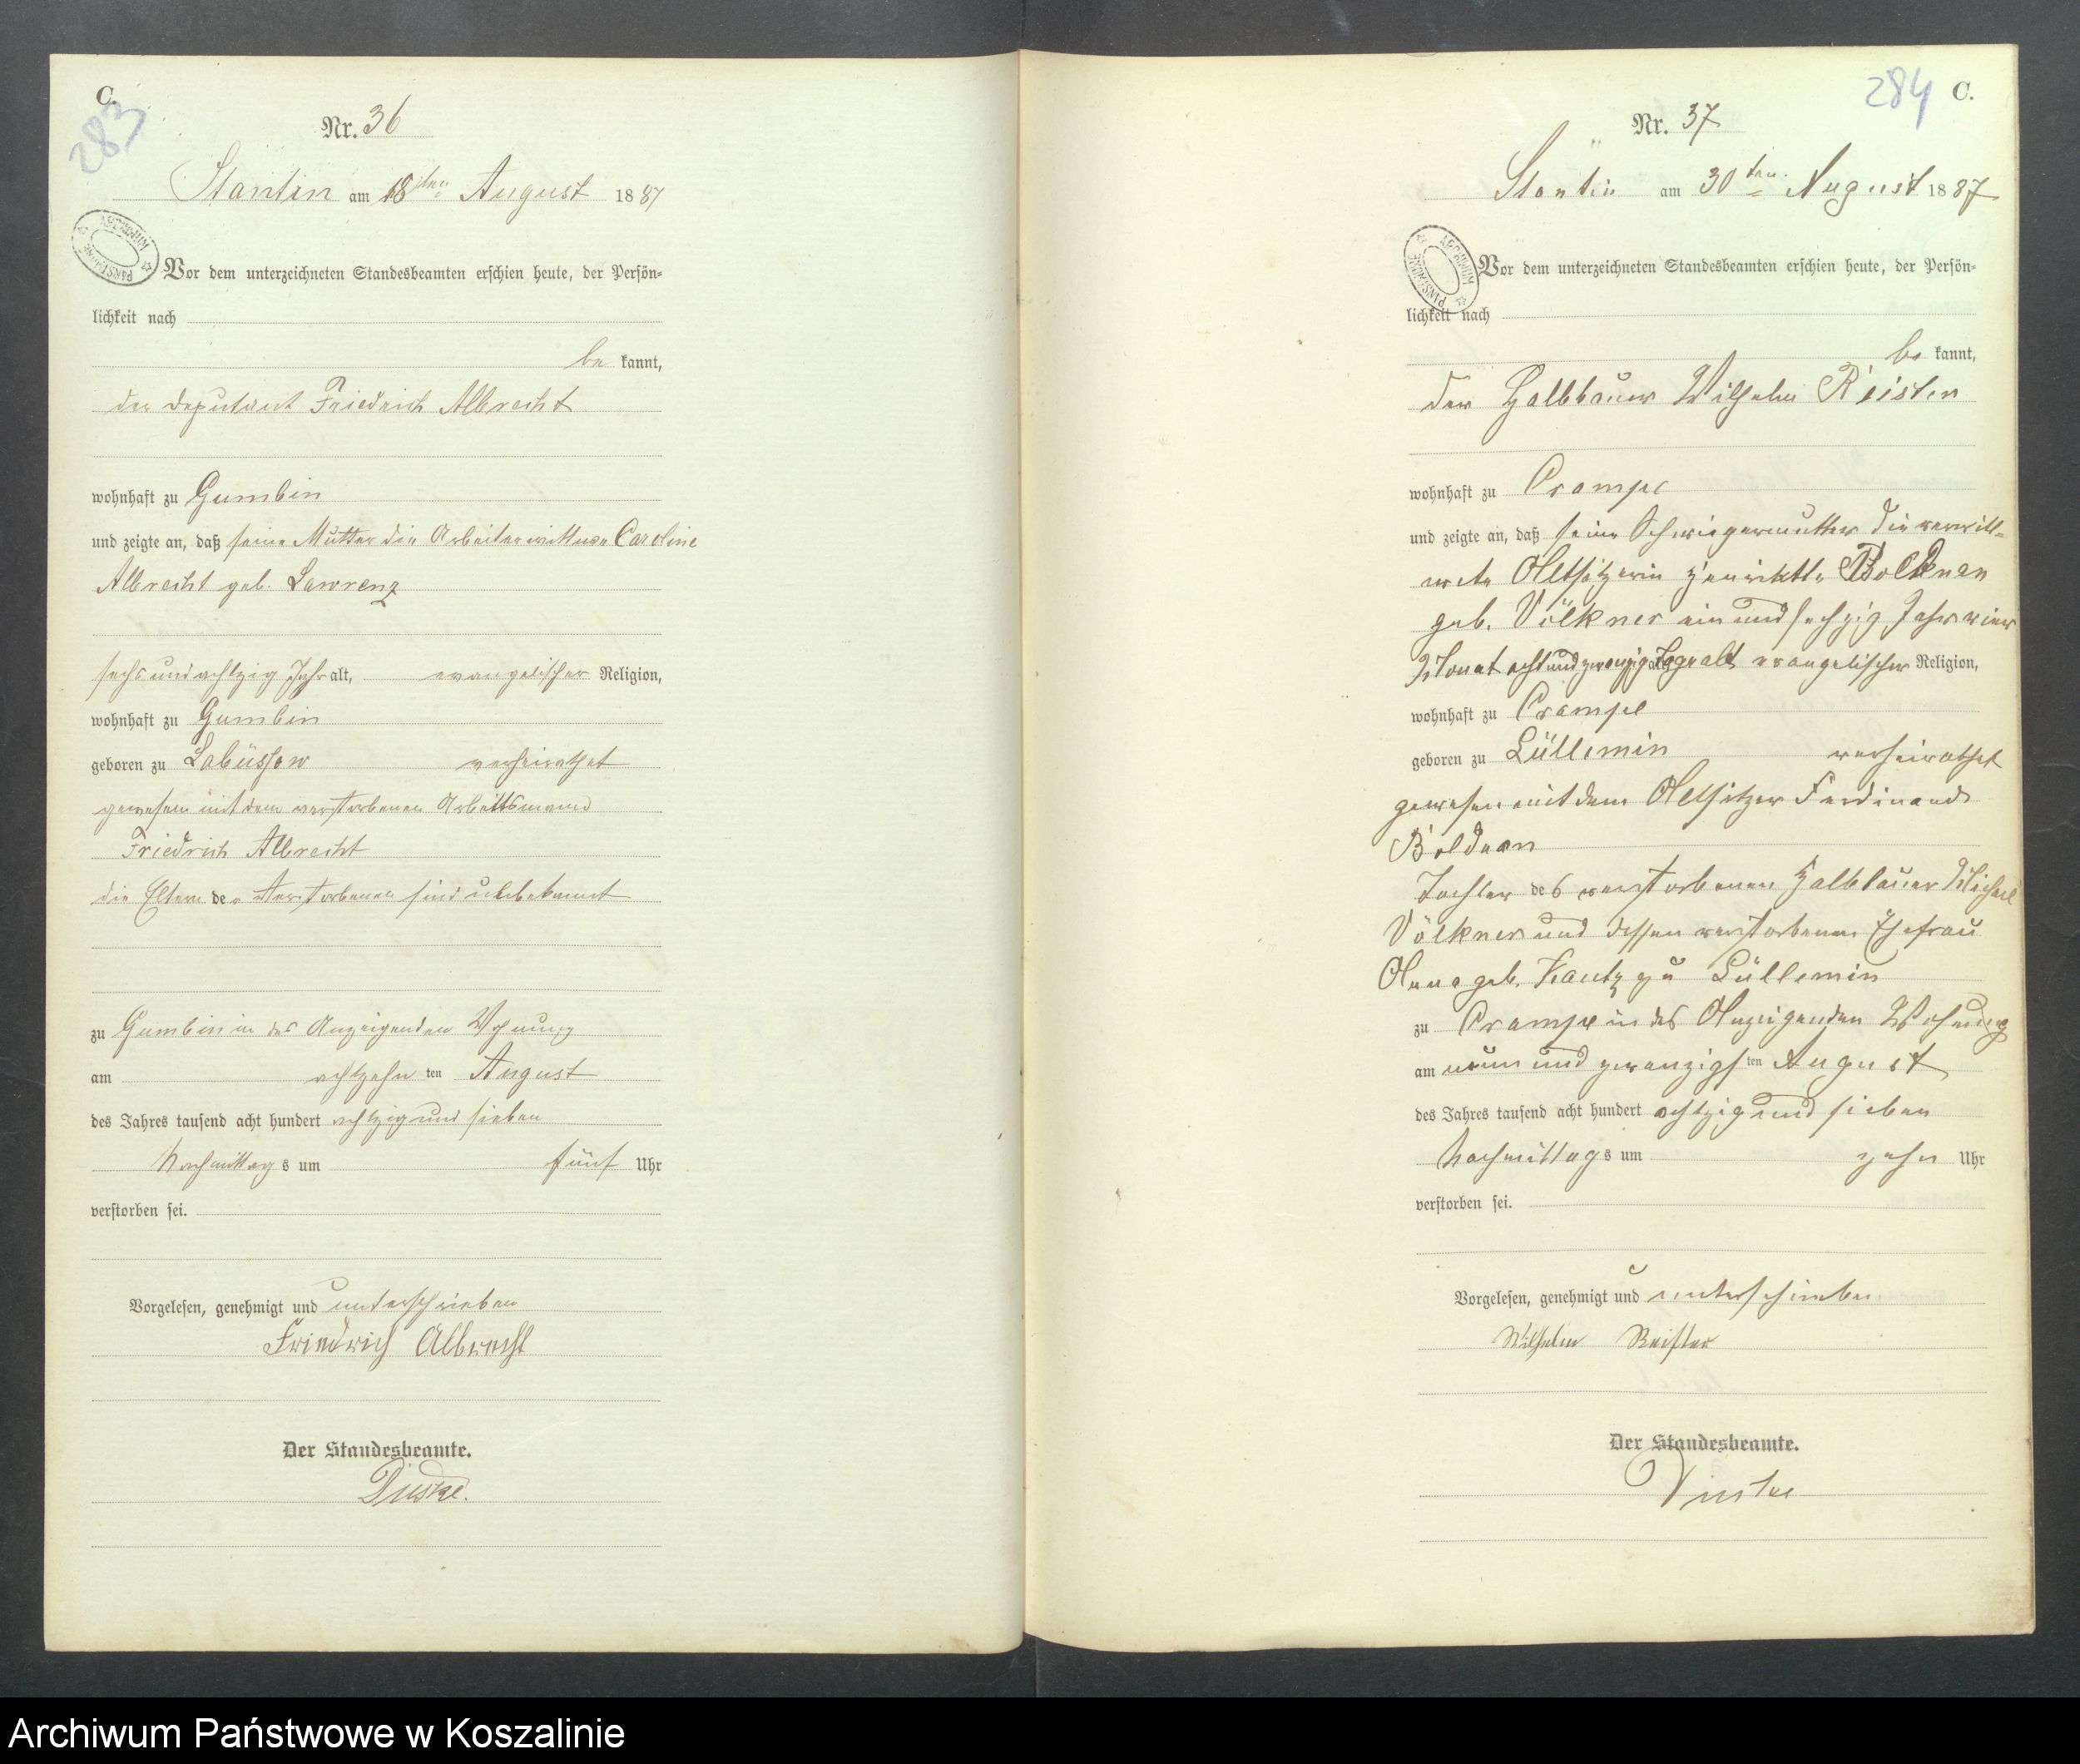 C.
283
Nr. 36
Stantin am 18ten August 1887
ARCHIWUM PAŃSTWOWE
Vor dem unterzeichneten Standesbeamten erschien heute, der Persön-
lichkeit nach
be kannt,
der Deputant Friedrich Albrecht
wohnhaft zu Gumbin
und zeigte an, daß seine Mutter die Arbeiterwittwe Caroline
Albrecht geb. Lawrenz
sechsundachtzig Jahr alt, evangelischer Religion,
wohnhaft zu Gumbin
geboren zu Labüssow verheirathet
gewesen mit dem verstorbenen Arbeitsmann
Friedrich Albrecht
die Eltern der Verstorbenen sind unbekannt
zu Gumbin in des Anzeigenden Wohnung
am achtzehn ten August
des Jahres tausend acht hundert achtzig und sieben
Nachmittags um fünf Uhr
verstorben sei.
Vorgelesen, genehmigt und unterschrieben
Friedrich Albrecht
Der Standesbeamte.
284 C.
Nr. 37
Stantin am 30ten August 1887
Vor dem unterzeichneten Standesbeamten erschien heute, der Persön-
lichkeit nach
be kannt,
der Halbbauer Wilhelm Reister
wohnhaft zu Crampe
und zeigte an, daß seine Schwiegermutter die verwitt-
wete Altsitzerin Henriette
geb. Völkner ein und sechzig Jahr vier
Monat acht und zwanzig Tage alt, evangelischer Religion,
wohnhaft zu Crampe
geboren zu Lüllemin verheirathet
gewesen mit dem Altsitzer Ferdinand
Bolduan
Tochter des verstorbenen Halbbauer Michael
Völkner und dessen verstorbenen Ehefrau
Anna geb. Kautz zu Lüllemin
zu Crampe in des Anzeigenden Wohnung
am neun und zwanzigsten August
des Jahres tausend acht hundert achtzig und sieben
Nachmittags um zehn Uhr
verstorben sei.
Vorgelesen, genehmigt und unterschrieben
Wilhelm Reister
Der Standesbeamte.
Archiwum Państwowe w Koszalinie